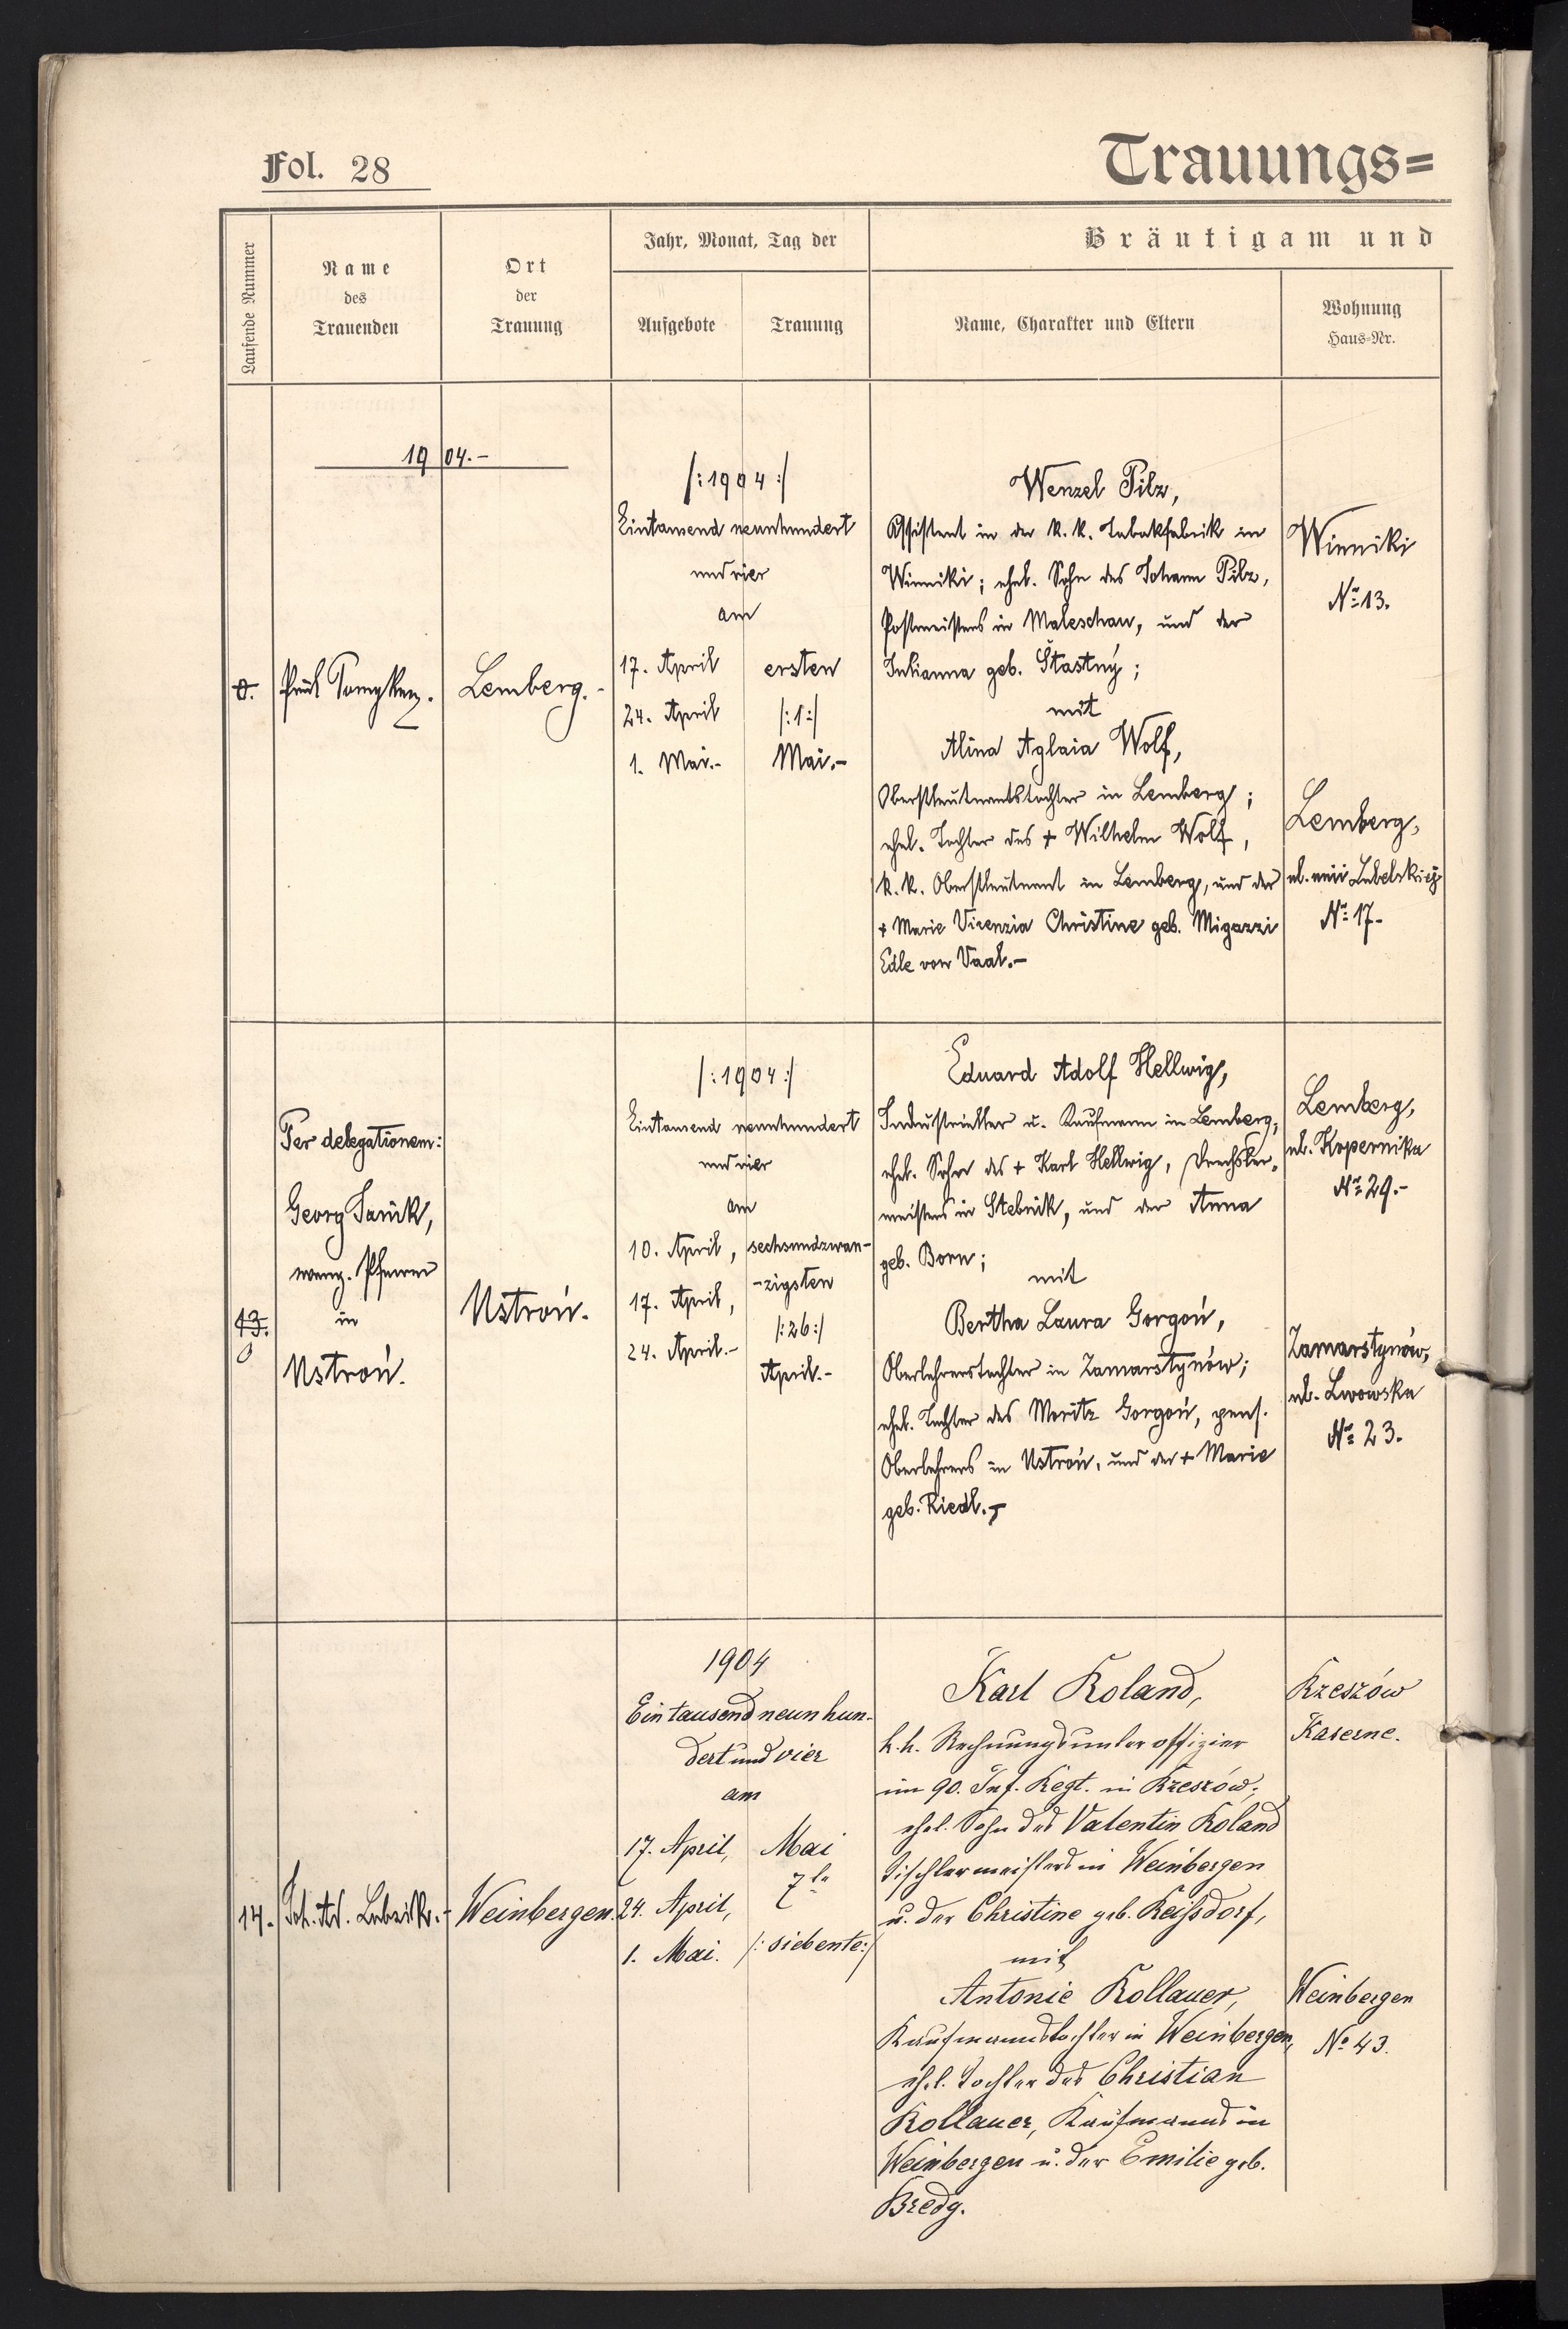 Fol. 28
Trauungs=
Laufende Nummer
Name
des
Trauenden
Ort
der
Trauung
Jahr, Monat, Tag der
Aufgebote
Trauung
Bräutigam und
Name, Charakter und Eltern
Wohnung
Haus-Nr.
1904.-
Lemberg.-
/:1904:/
Eintausend neunhundert
und vier
am
17. April
24. April
1. Mai.-
ersten
/:1:/
Mai.-
Wenzel Pilz,
Assistent in der k. k. Tabakfabrik in
Winniki; ehel. Sohn des Johann Pilz,
Postmeisters in Maleschau, und der
Julianna geb. Štastný;
mit
Alina Aglaia Wolf,
Oberstleutnantstochter in Lemberg;
ehel. Tochter des + Wilhelm Wolf,
k. k. Oberstleutnant in Lemberg, und der
+ Marie Vicenzia Christine geb. Migazzi
Edle von Vaal.-
Winniki
No 13.
Lemberg,
No 17.-
13.
Per delegationem:
Georg Janik,
evang. Pfarrer
in
Ustroń.
Ustroń.
/:1904:/
Eintausend neunhundert
und vier
am
10. April,
17. April,
24. April.-
sechsundzwan-
-zigsten
/:26:/
April.-
Eduard Adolf Hellwig,
Industrieller u. Kaufmann in Lemberg,
ehel. Sohn des + Karl Hellwig, Drechsler-
meisters in Stebnik, und der Anna
geb. Born;
mit
Bertha Laura Gorgoń,
Oberlehrerstochter in Zamarstynów;
ehel. Tochter des Moritz Gorgoń, pens.
Oberlehrers in Ustroń, und der + Marie
geb. Riedl.-
Lemberg,
ul. Kopernika
No 29.-
Zamarstynów,
ul. Lwowska
No 23.
14.
Weinbergen.
1904
Eintausend neunhun-
dert und vier
am
17. April,
24. April,
1. Mai.
Mai
7te
/: siebente:/
Karl Roland,
k. k. Rechnungsunteroffizier
im 90. Inf. Regt. in Rzeszów;
ehel. Sohn des Valentin Roland
Tischlermeisters in Weinbergen
u. der Christine geb. Reißdorf,
mit
Antonie Kollauer,
Kaufmannstochter in Weinbergen,
ehel. Tochter des Christian
Kollauer, Kaufmanns in
Weinbergen u. der Emilie geb.
Bredy.
Rzeszów
Kaserne.
Weinbergen
No 43.